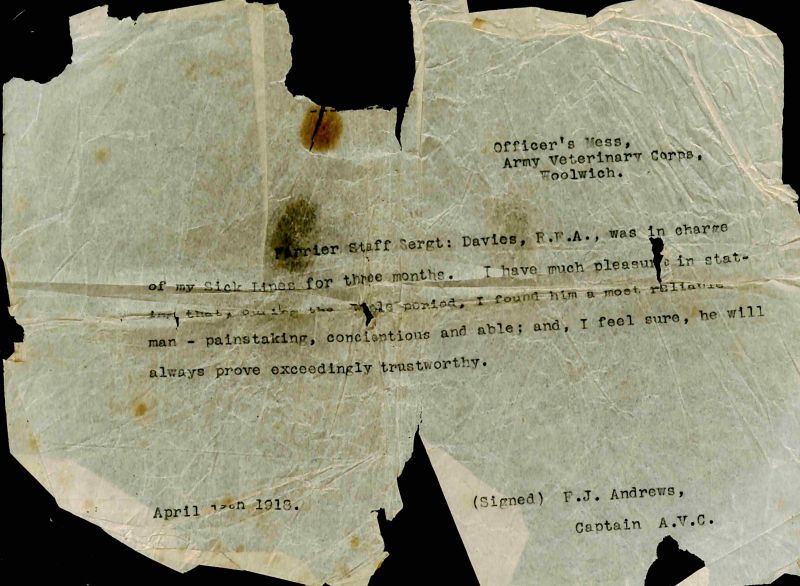 Officer's Mess,
Army Veterinary Corps,
Woolwich.
Farrier Staff Sergt: Davies, R.F.A., was in charge
of my Sick Lines for three months. I have much pleasure in stat-
ing that, during the whole period, I found him a most reliable
man - painstaking, concientious and able; and, I feel sure, he will
always prove exceedingly trustworthy.
April 1918.
(Signed) F.J. Andrews,
Captain A.V.C.